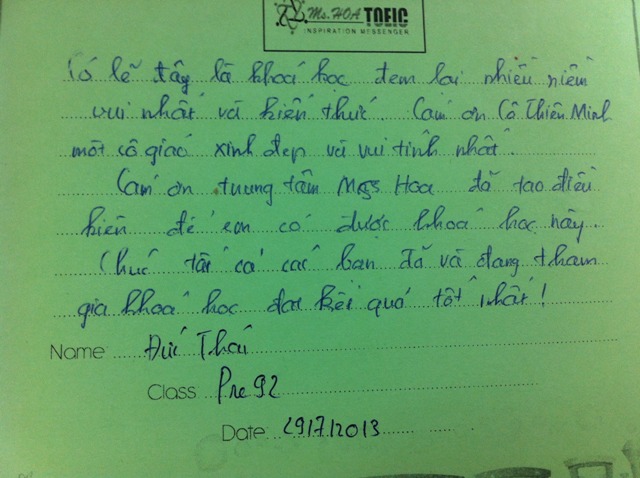 Ms. HOA TOEIC
INSPIRATION MESSENGER
Có lẽ đây là khoá học đem lại nhiều niềm
vui nhất và kiến thức. Cám ơn Cô Thiên Minh
một cô giáo xinh đẹp và vui tính nhất.
Cám ơn trung tâm Mss Hoa đã tạo điều
kiện để em có được khoá học này.
Chúc tất cả các bạn đã và đang tham
gia khoá học đạt kết quả tốt nhất!
Name Đức Thái
Class Pre 92
Date 29/7/2013